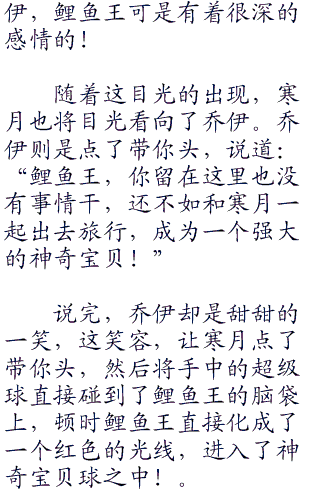 伊，鲤鱼王可是有着很深的
感情的！
随着这目光的出现，寒
月也将目光看向了乔伊。乔
伊则是点了带你头，说道：
“鲤鱼王，你留在这里也没
有事情干，还不如和寒月一
起出去旅行，成为一个强大
的神奇宝贝！”
说完，乔伊却是甜甜的
一笑，这笑容，让寒月点了
带你头，然后将手中的超级
球直接碰到了鲤鱼王的脑袋
上，顿时鲤鱼王直接化成了
一个红色的光线，进入了神
奇宝贝球之中！。